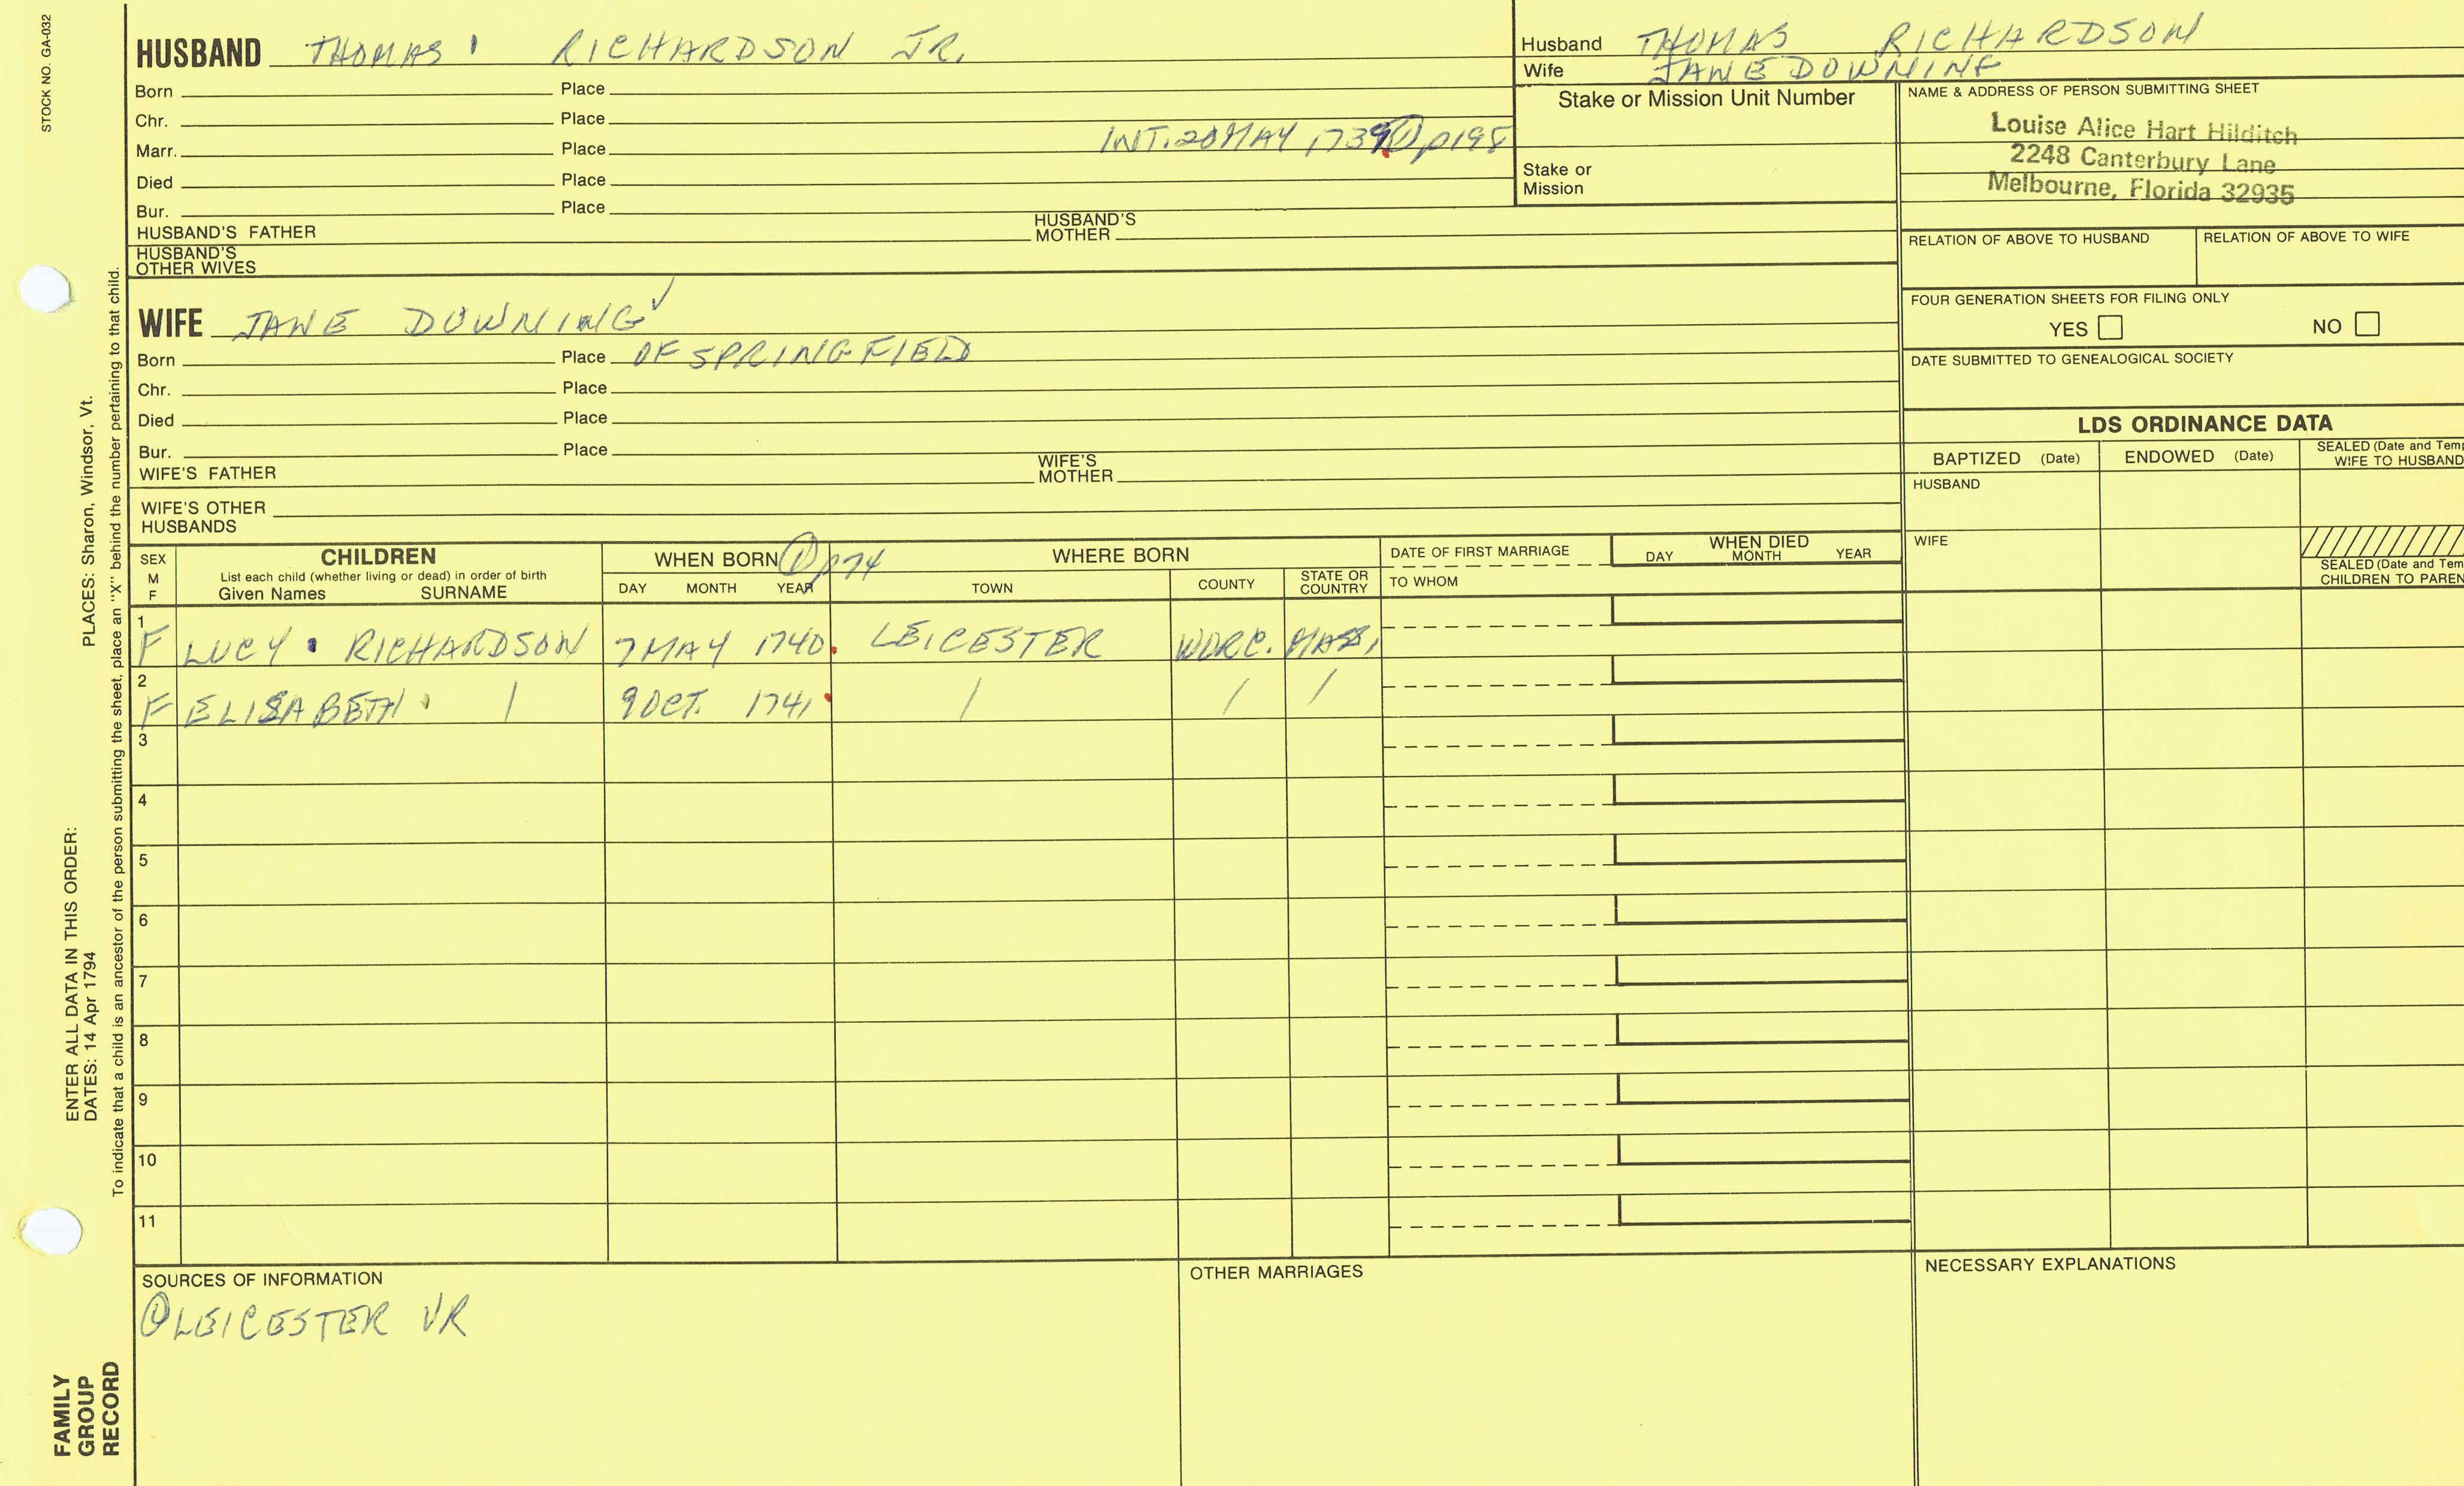 STOCK NO. GA-032
HUSBAND THOMAS RICHARDSON JR.
Born Place
Chr. Place
Marr. Place INT. 20 MAY 1739 ① p198
Died Place
Bur. Place
HUSBAND'S FATHER HUSBAND'S MOTHER
HUSBAND'S OTHER WIVES
Husband THOMAS RICHARDSON
Wife JANE DOWNING
Stake or Mission Unit Number
Stake or Mission
NAME & ADDRESS OF PERSON SUBMITTING SHEET
Louise Alice Hart Hilditch
2248 Canterbury Lane
Melbourne, Florida 32935
RELATION OF ABOVE TO HUSBAND RELATION OF ABOVE TO WIFE
FOUR GENERATION SHEETS FOR FILING ONLY
YES NO
DATE SUBMITTED TO GENEALOGICAL SOCIETY
WIFE JANE DOWNING ✓
Born Place OF SPRINGFIELD
Chr. Place
Died Place
Bur. Place
WIFE'S FATHER WIFE'S MOTHER
WIFE'S OTHER HUSBANDS
LDS ORDINANCE DATA
BAPTIZED (Date) ENDOWED (Date) SEALED (Date and Temp
WIFE TO HUSBAND
HUSBAND
WIFE
SEALED (Date and Tem
CHILDREN TO PAREN
SEX M F
CHILDREN
List each child (whether living or dead) in order of birth
Given Names SURNAME
WHEN BORN ① p74
DAY MONTH YEAR
WHERE BORN
TOWN COUNTY STATE OR COUNTRY
DATE OF FIRST MARRIAGE
TO WHOM
WHEN DIED
DAY MONTH YEAR
1 F LUCY RICHARDSON 7 MAY 1740 LEICESTER WORC. MASS.
2 F ELISABETH / 9 OCT. 1741 / / /
3
4
5
6
7
8
9
10
11
SOURCES OF INFORMATION
① LEICESTER VR
OTHER MARRIAGES
NECESSARY EXPLANATIONS
PLACES: Sharon, Windsor, Vt.
ENTER ALL DATA IN THIS ORDER:
DATES: 14 Apr 1794
To indicate that a child is an ancestor of the person submitting the sheet, place an "X" behind the number pertaining to that child.
FAMILY
GROUP
RECORD